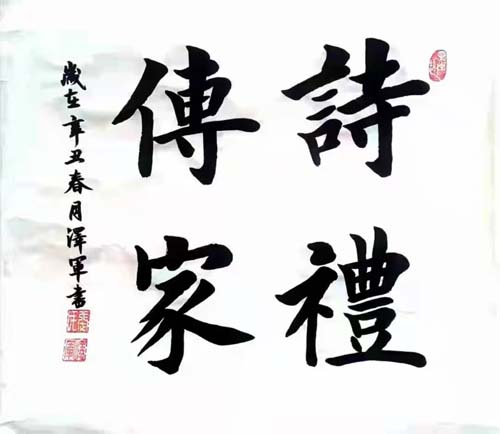 詩禮
傳家
歲在辛丑春月澤軍書